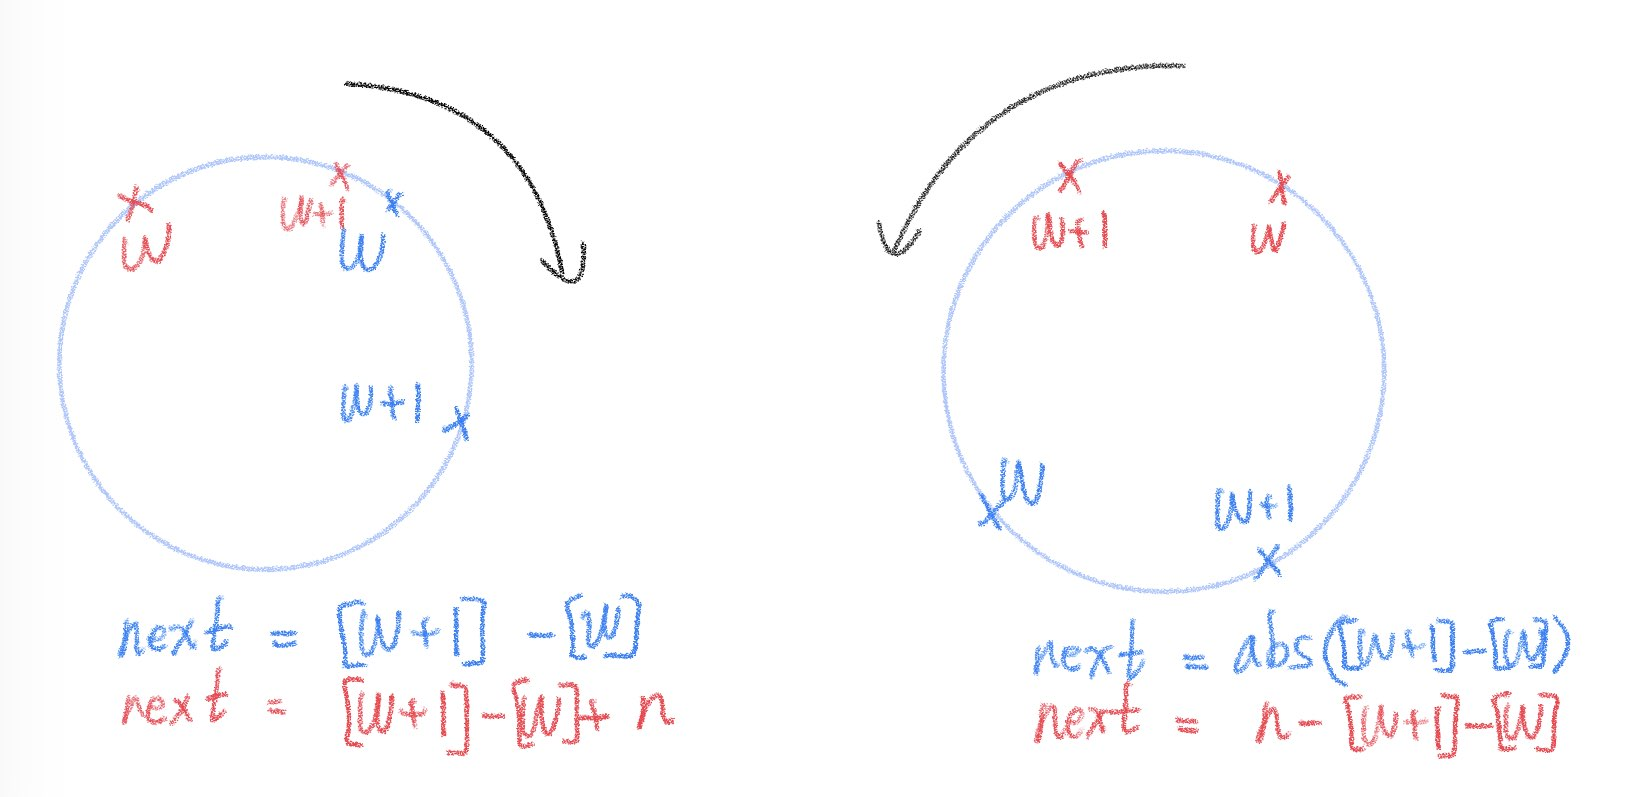 W
W+1
W
W+1
next = [W+1] - [W]
next = [W+1]-[W]+ n
W+1
W
W
W+1
next = abs([W+1]-[W])
next = n- [W+1]-[W]